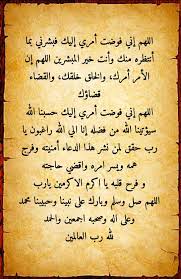 اللهم إني فوضت أمري إليك فبشرني بما
أنتظره منك وأنت خير المبشرين اللهم إن
الأمر أمرك، والخلق خلقك، والقضاء
قضاؤك
اللهم إني فوضت أمري إليك حسبنا الله
سيؤتينا الله من فضله إنا الي الله راغبون يا
رب حقق لمن نشر هذا الدعاء أمنيته وفرج
همه ويسر امره واقضي حاجته
و فرح قلبه يا اكرم الاكرمين يارب
اللهم صل وسلم وبارك على نبينا وحبيبنا محمد
وعلى اله وصحبه اجمعين والحمد
لله رب العالمين